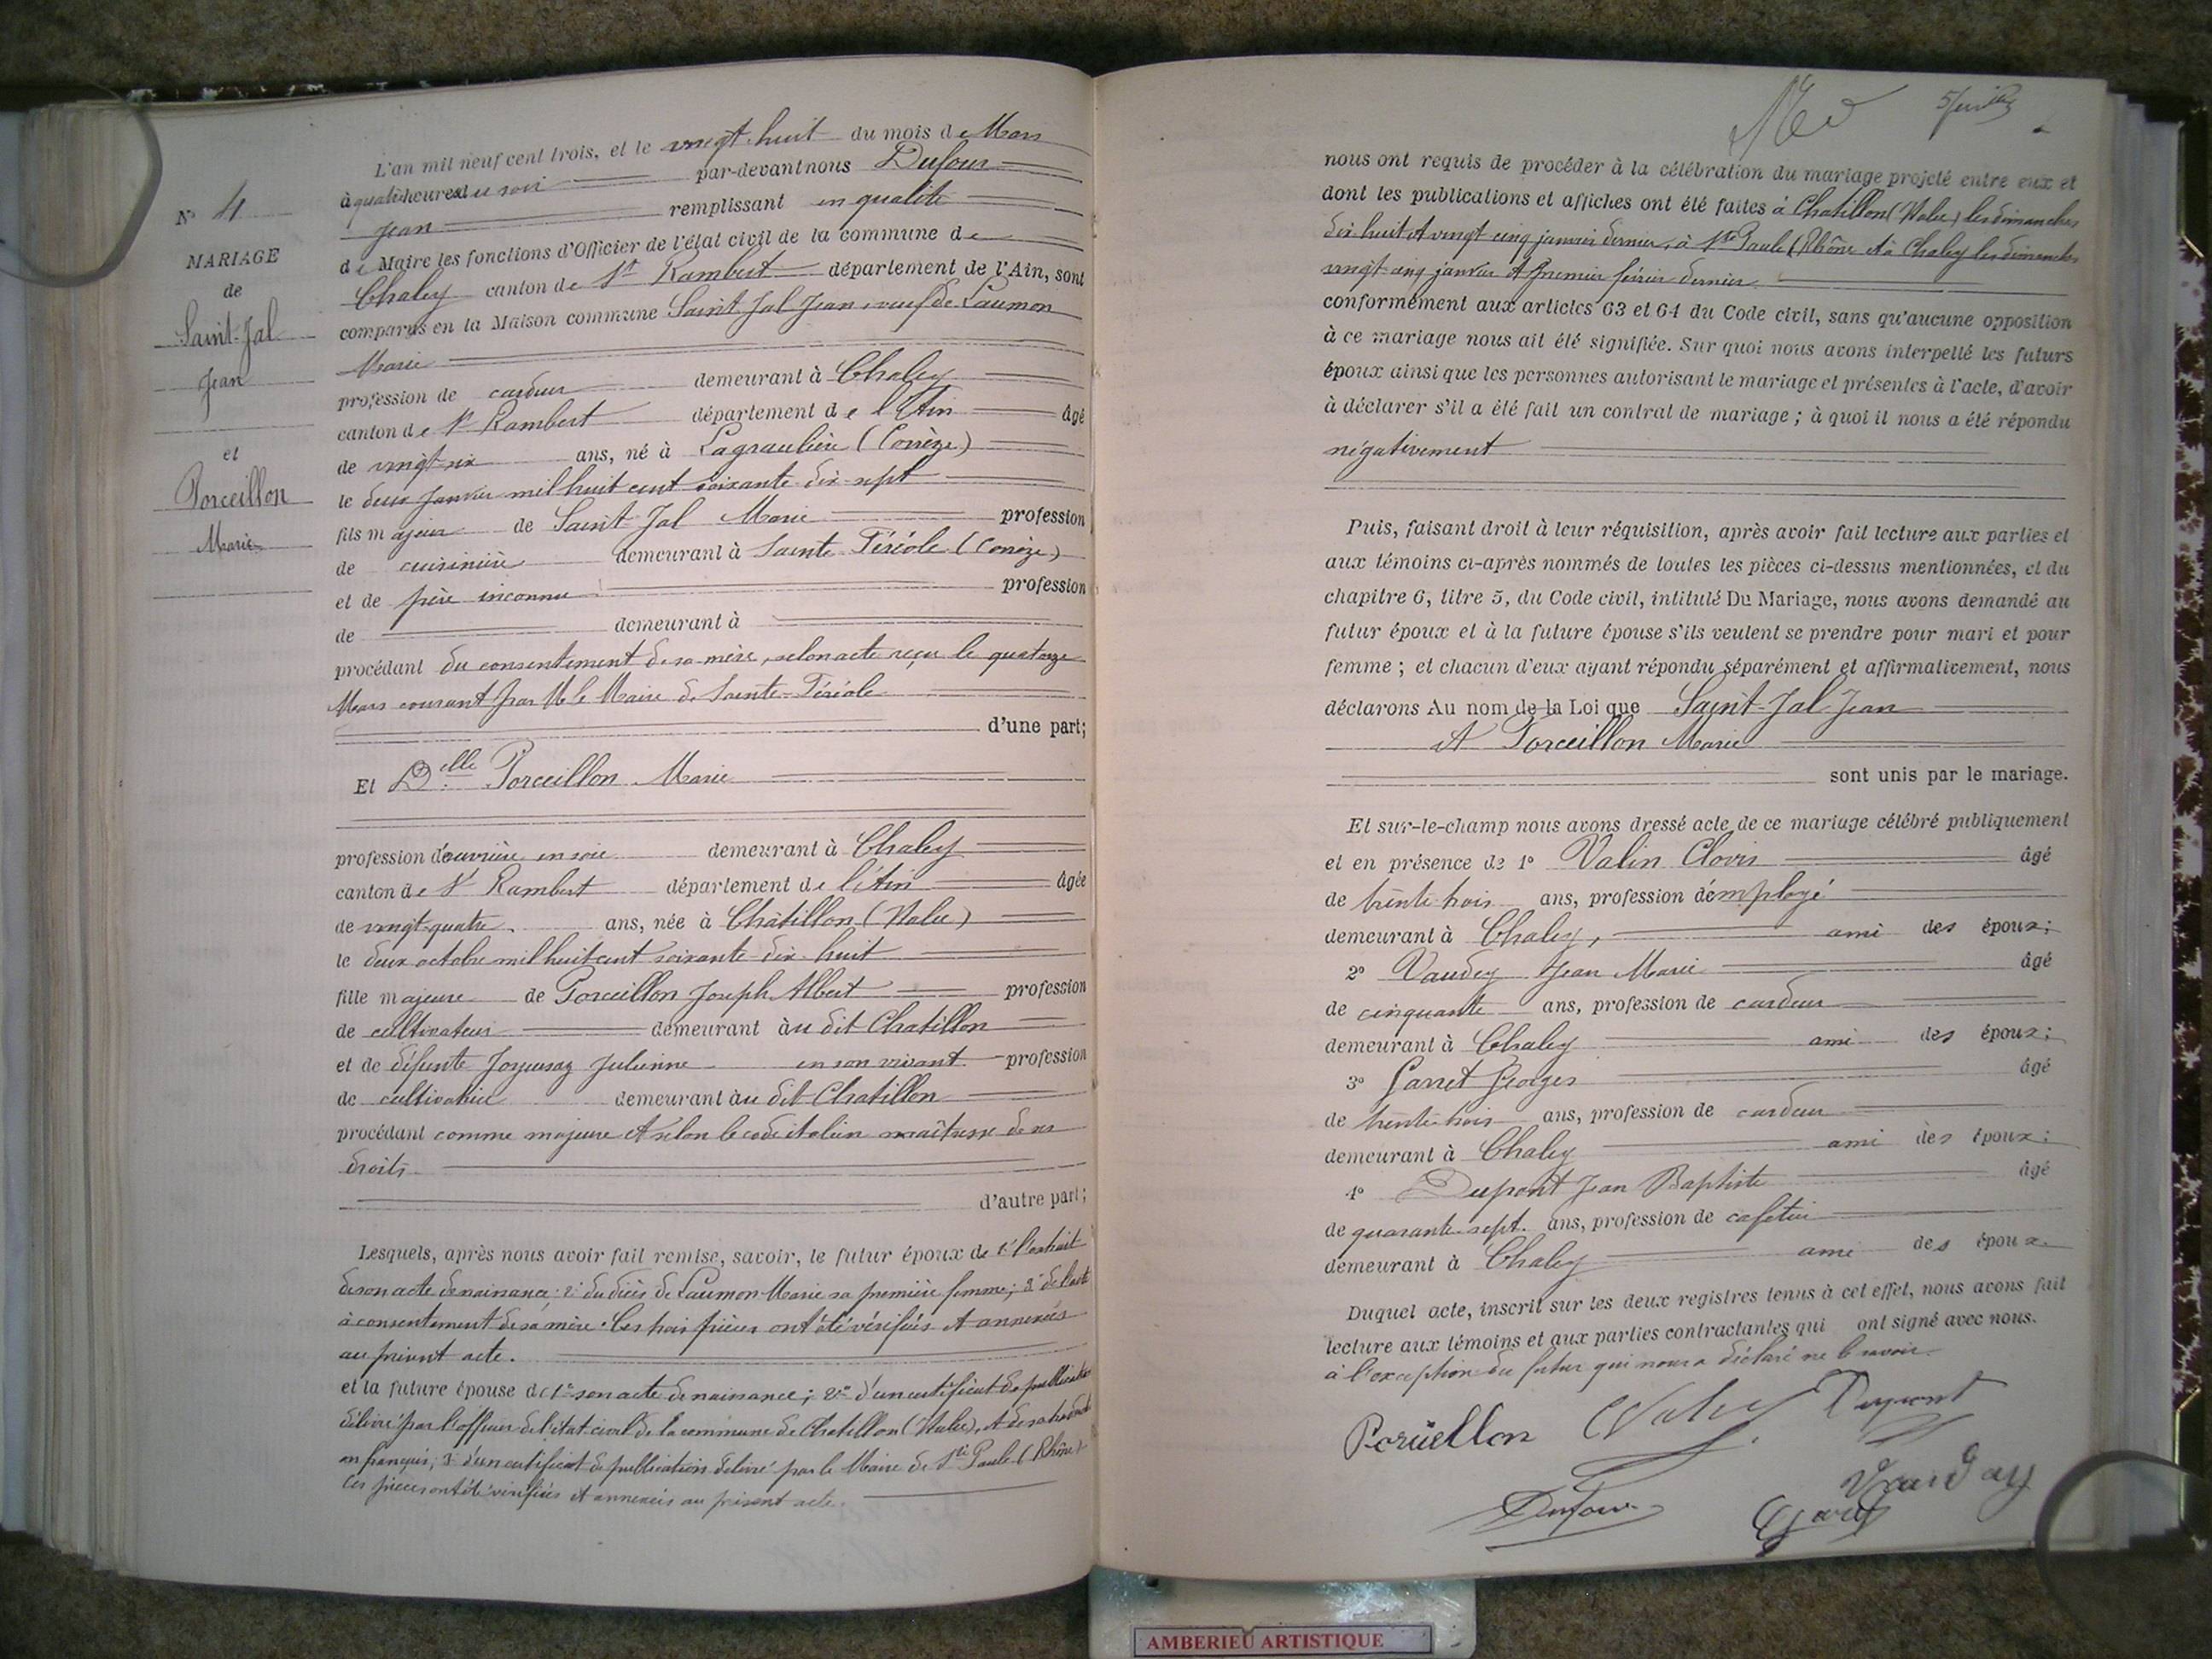 N° 4
MARIAGE
de
Saint-Jal
Jean
et
Porceillon
Marie
L'an mil neuf cent trois, et le vingt-huit du mois de Mars
à quatre heures du soir par-devant nous Dufour
Jean remplissant en qualité
de Maire les fonctions d'Officier de l'état civil de la commune de
Chaley canton de St Rambert département de l'Ain, sont
comparus en la Maison commune Saint Jal Jean, veuf de Laumon
Marie
profession de cardeur demeurant à Chaley
canton de St Rambert département de l'Ain âgé
de vingt-six ans, né à Lagraulière (Corrèze)
le deux Janvier mil huit cent soixante-dix-sept
fils majeur de Saint Jal Marie profession
de cuisinière demeurant à Sainte Féréole (Corrèze)
et de père inconnu profession
de demeurant à
procédant du consentement de sa mère, selon acte reçu le quatorze
Mars courant par Mr le Maire de Sainte-Féréole
d'une part;
Et Delle Porceillon Marie
profession d'ouvrière en soie demeurant à Chaley
canton de St Rambert département de l'Ain âgée
de vingt-quatre ans, née à Châtillon (Italie)
le deux octobre mil huit cent soixante-dix-huit
fille majeure de Porceillon Joseph Albert profession
de cultivateur demeurant au dit Chatillon
et de défunte Joyeusaz Julienne en son vivant profession
de cultivatrice demeurant au dit Chatillon
procédant comme majeure et selon le code italien maîtresse de ses
droits
d'autre part;
Lesquels, après nous avoir fait remise, savoir, le futur époux de 1° l'extrait
de son acte de naissance; 2° du décès de Laumon Marie sa première femme; 3° de l'acte
à consentement de sa mère. Ces trois pièces ont été vérifiées et annexées
au présent acte.
et la future épouse de 1° son acte de naissance; 2° d'un certificat de publication
délivré par l'officier de l'état civil de la commune de Chatillon (Italie), et de sa traduction
en français; 3° d'un certificat de publication délivré par le Maire de Ste Paule (Rhône)
Ces pièces ont été vérifiées et annexées au présent acte.
nous ont requis de procéder à la célébration du mariage projeté entre eux et
dont les publications et affiches ont été faites à Chatillon (Italie) les dimanches
dix huit et vingt cinq janvier dernier, à Ste Paule (Rhône) et à Chaley les dimanches
vingt-cinq janvier et premier février dernier
conformément aux articles 63 et 64 du Code civil, sans qu'aucune opposition
à ce mariage nous ait été signifiée. Sur quoi nous avons interpellé les futurs
époux ainsi que les personnes autorisant le mariage et présentes à l'acte, d'avoir
à déclarer s'il a été fait un contrat de mariage; à quoi il nous a été répondu
négativement
Puis, faisant droit à leur réquisition, après avoir fait lecture aux parties et
aux témoins ci-après nommés de toutes les pièces ci-dessus mentionnées, et du
chapitre 6, titre 5, du Code civil, intitulé Du Mariage, nous avons demandé au
futur époux et à la future épouse s'ils veulent se prendre pour mari et pour
femme; et chacun d'eux ayant répondu séparément et affirmativement, nous
déclarons Au nom de la Loi que Saint-Jal Jean
et Porceillon Marie
sont unis par le mariage.
Et sur-le-champ nous avons dressé acte de ce mariage célébré publiquement
et en présence de 1° Valin Clovis âgé
de trente-trois ans, profession d'employé
demeurant à Chaley, ami des époux;
2° Vaudey Jean Marie âgé
de cinquante ans, profession de cardeur
demeurant à Chaley ami des époux;
3° Garret Georges âgé
de trente-trois ans, profession de cardeur
demeurant à Chaley ami des époux;
4° Dupont Jean Baptiste âgé
de quarante-sept ans, profession de cafetier
demeurant à Chaley ami des époux.
Duquel acte, inscrit sur les deux registres tenus à cet effet, nous avons fait
lecture aux témoins et aux parties contractantes qui ont signé avec nous.
à l'exception du futur qui nous a déclaré ne le savoir.
Porceillon Dupont
Vauday
Dufour
AMBERIEU ARTISTIQUE